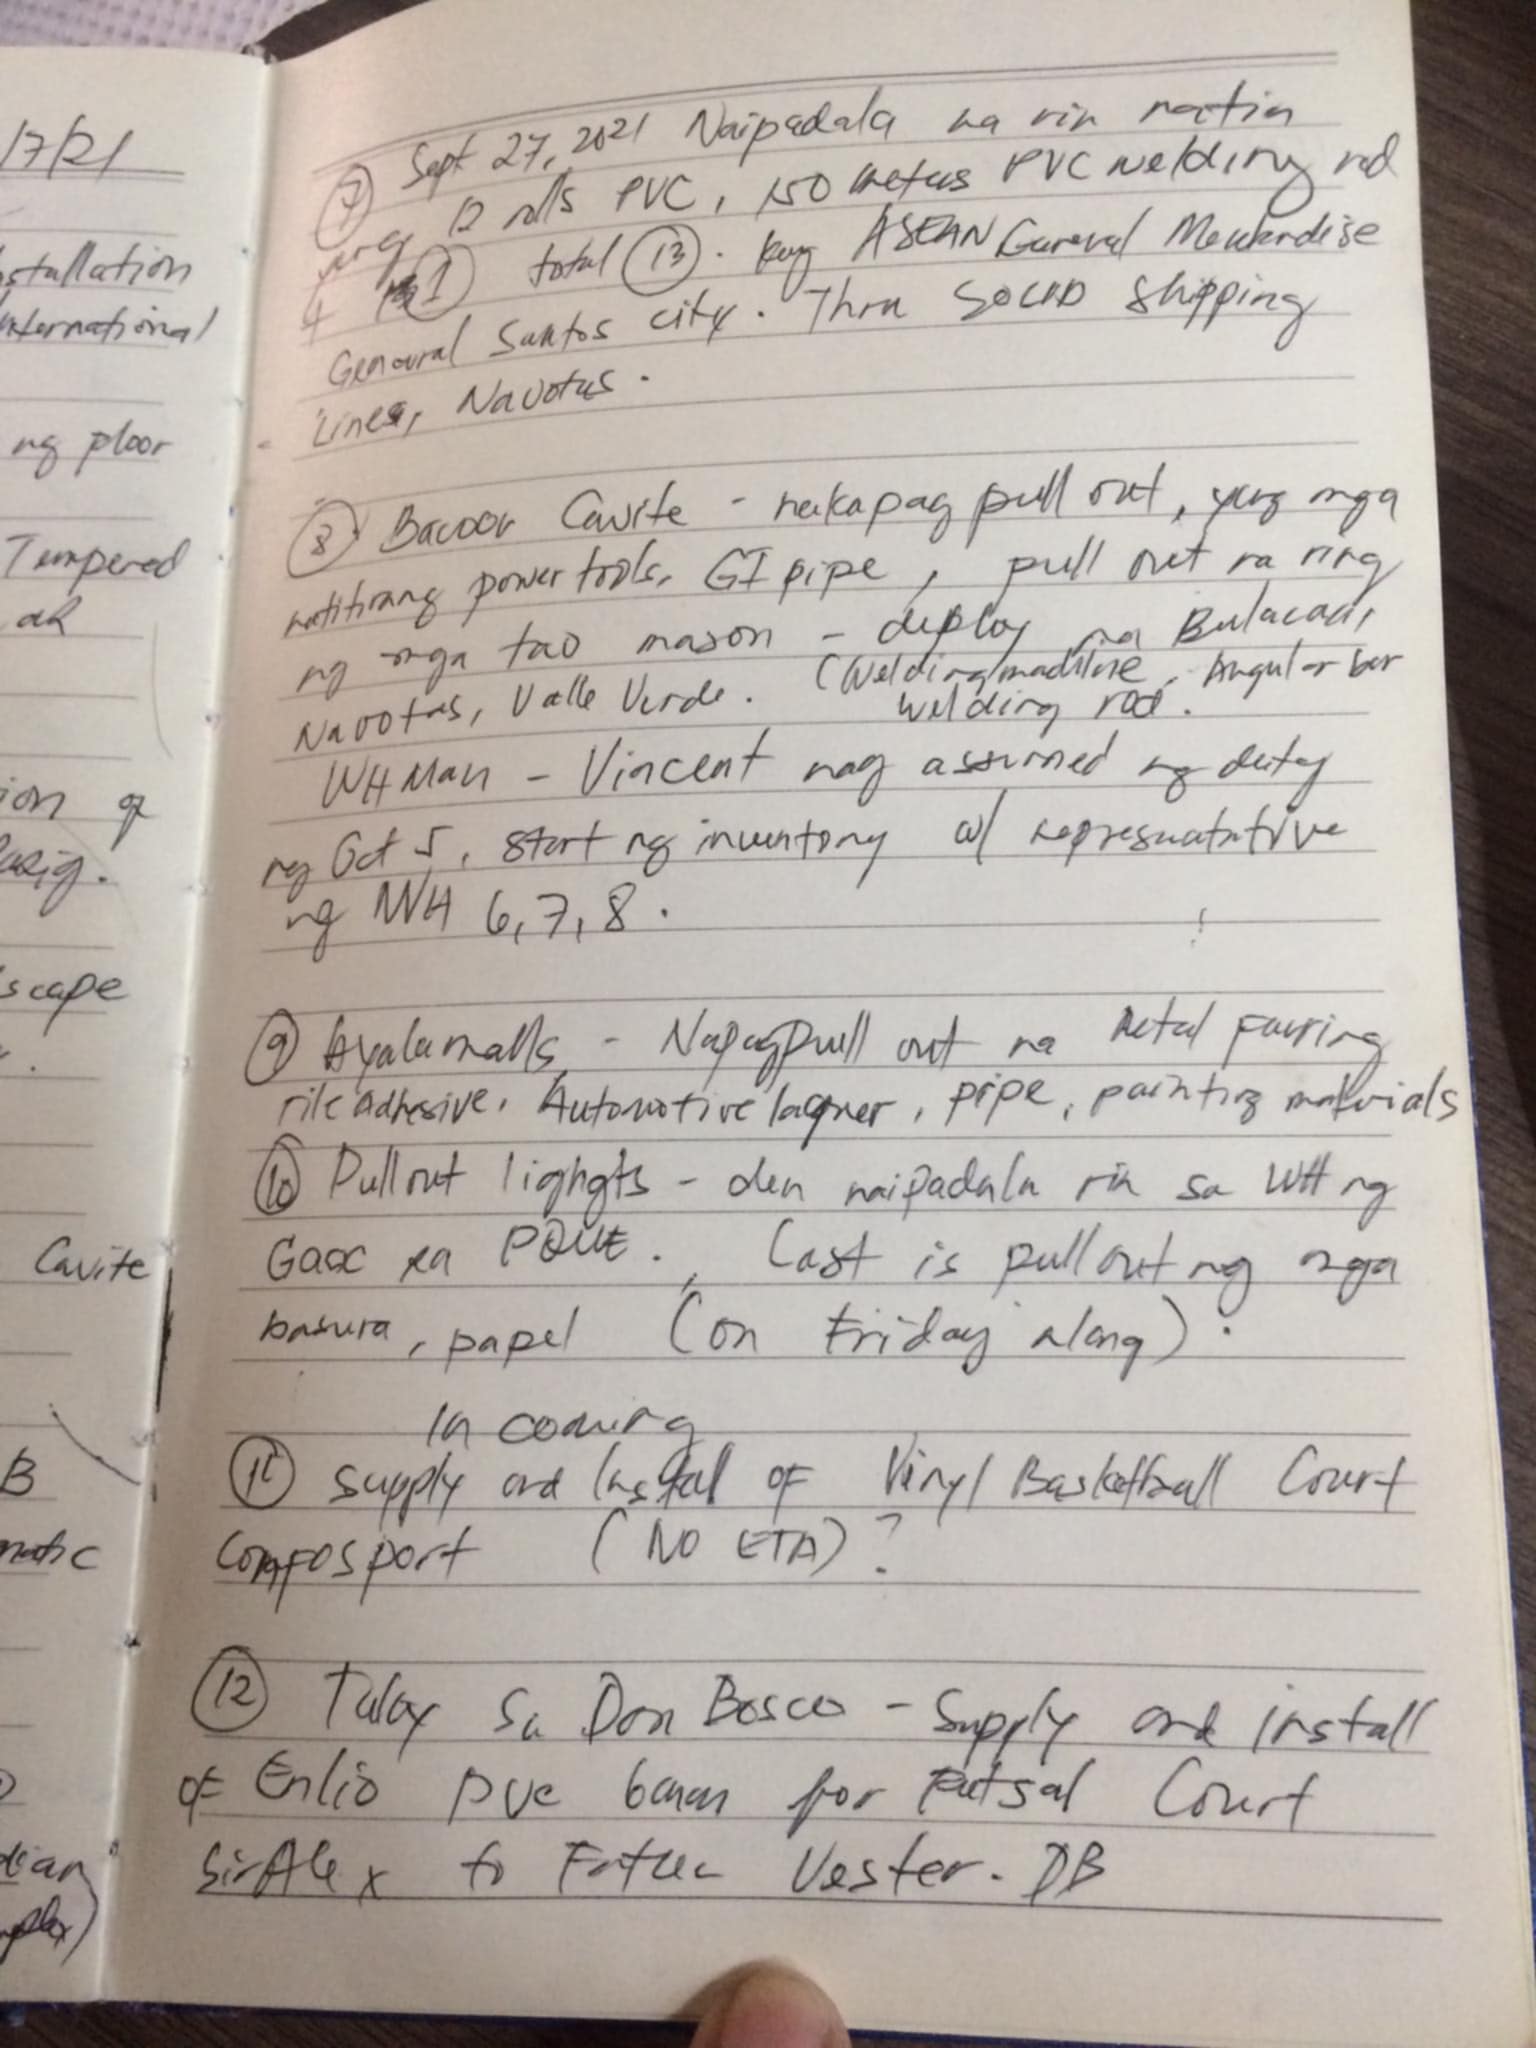 17/21
stallation
nternational
ng ploor
Tempered
ak
ion of
Pasig.
scape
Cavite
B
matic
dian
mplex)
⑦ Sept 27, 2021 Naipadala na rin natin
yung 12 rolls PVC, 150 meters PVC welding rod
① total ⑬. kay ASEAN General Merchandise
General Santos city. Thru SOLID Shipping
Lines, Navotas.
⑧ Bacoor Cavite - nakapag pull out, yung mga
natitirang power tools, GI pipe, pull out na ring
ng mga tao mason - deploy na Bulacan,
Navotas, Valle Verde. (Welding machine, Angular bar
welding rod.
WH Man - Vincent nag assumed ng duty
ng Oct 5, start ng inventory w/ representative
ng WH 6, 7, 8.
⑨ Ayalamalls - Napagpull out na Metal Fauring
Tile Adhesive, Automotive laquer, pipe, painting materials
⑩ Pull out lighgts - den naipadala rin sa WH ng
sa PQUE. Last is pull out ng mga
basura, papel (on Friday along).
In coming
⑪ Supply and Instal of Vinyl Basketball Court
Composport (NO ETA)?
⑫ Tulay sa Don Bosco - Supply and install
of Enlio pvc 6mm for Futsal Court
Sir Alex to Father Vester. DB